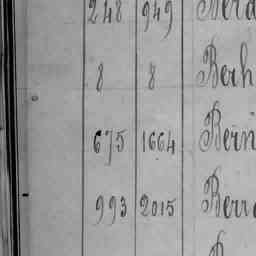 248 949 Berd
8 8 Berh
675 1664 Bern
993 2015 Berr